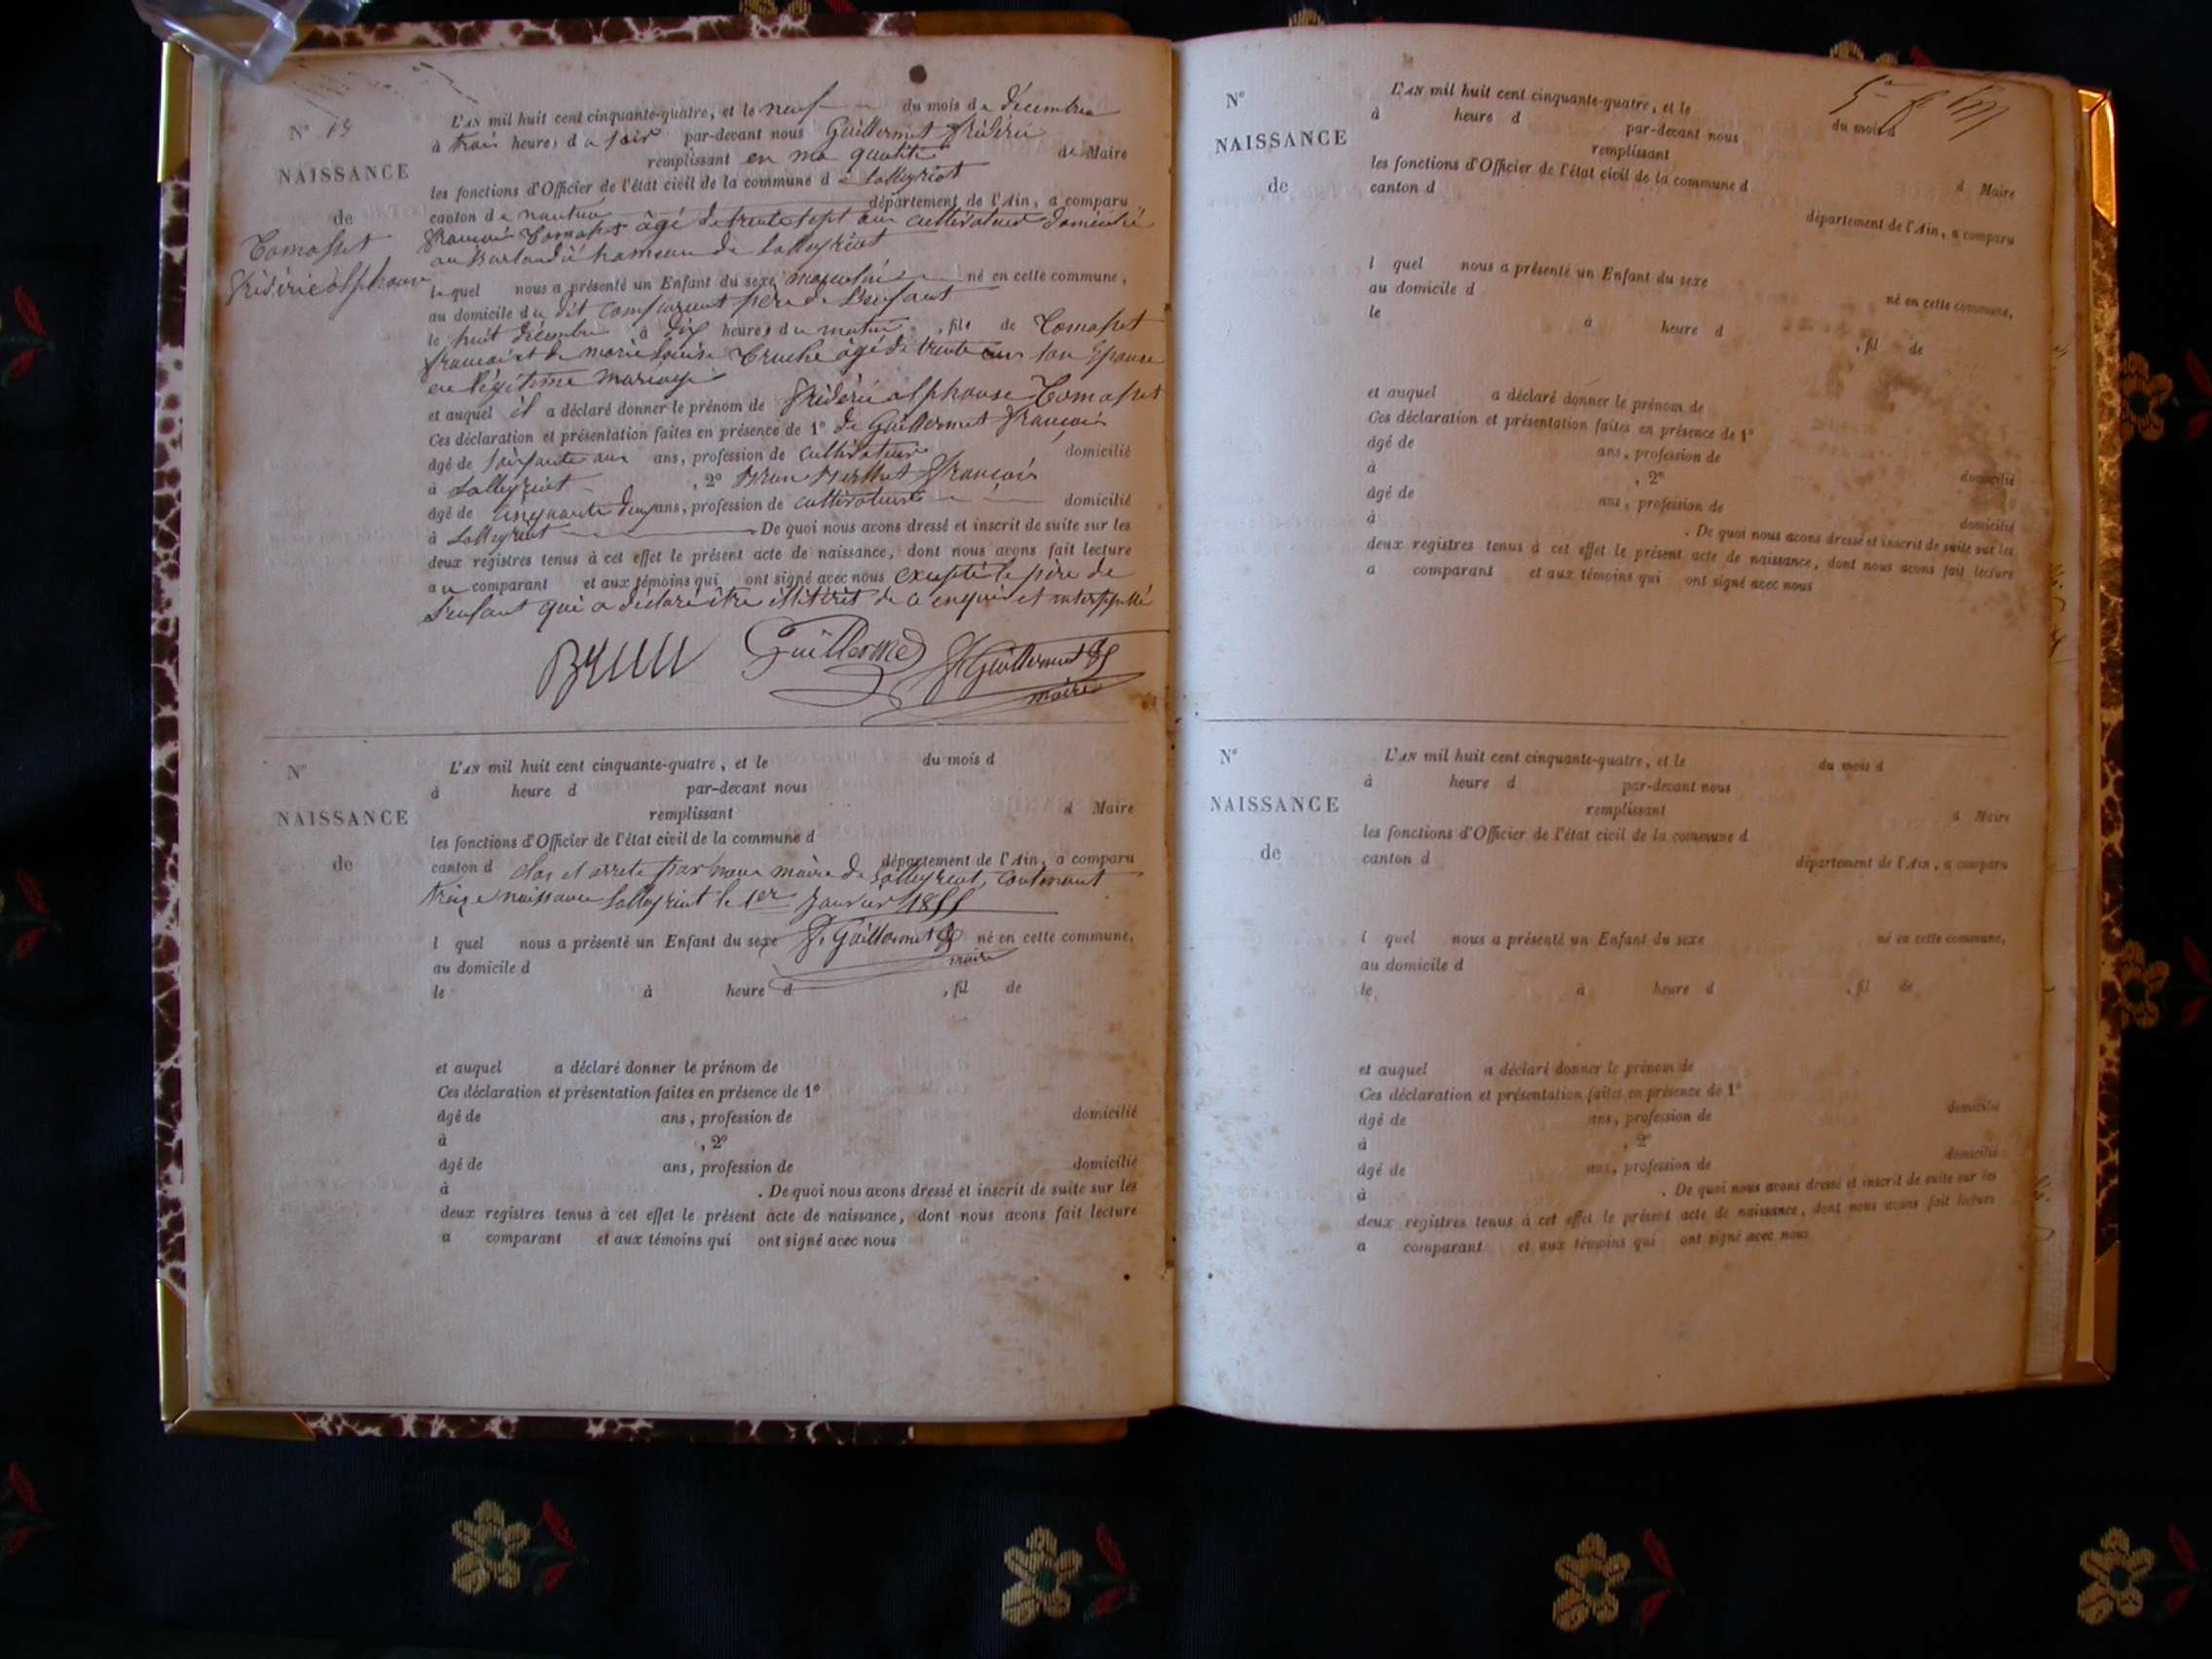 N° 13
NAISSANCE
de
Tomasset
frédéric alphonse
L'AN mil huit cent cinquante-quatre, et le neuf du mois de décembre
à trois heures du soir par-devant nous Guillermet frédéric
remplissant en ma qualité de Maire
les fonctions d'Officier de l'état civil de la commune de Lalleyriat
canton de nantua département de l'Ain, a comparu
françois Tomasset âgé de trente sept ans cultivateur domicilié
au hameau de Lalleyriat
lequel nous a présenté un Enfant du sexe masculin né en cette commune,
au domicile du dit comparant père de L'enfant
le huit décembre à dix heures du matin, fils de Tomasset
françois et de marie Louise âgé de trente ans son Epouse
en légitime mariage
et auquel il a déclaré donner le prénom de frédéric alphonse Tomasset
Ces déclaration et présentation faites en présence de 1° de Guillermet françois
âgé de soixante ans ans, profession de cultivateur domicilié
à Lalleyriat , 2° Brun Berthet françois
âgé de cinquante deux ans, profession de cultivateur domicilié
à Lalleyriat De quoi nous avons dressé et inscrit de suite sur les
deux registres tenus à cet effet le présent acte de naissance, dont nous avons fait lecture
au comparant et aux témoins qui ont signé avec nous excepté le père de
L'enfant qui a déclaré être illitéret de ce enquis et interppellé
Brun Guillermet F Guillermet
maire
N°
NAISSANCE
de
L'AN mil huit cent cinquante-quatre, et le du mois d
à heure d par-devant nous
remplissant d Maire
les fonctions d'Officier de l'état civil de la commune d
canton d département de l'Ain, a comparu
clos et arrete par nous maire de Lalleyriat, contenant
treize naissance Lalleyriat le 1er janvier 1855
l quel nous a présenté un Enfant du sexe né en cette commune,
F. Guillermet
maire
au domicile d
le à heure d , fil de
et auquel a déclaré donner le prénom de
Ces déclaration et présentation faites en présence de 1°
âgé de ans, profession de domicilié
à , 2°
âgé de ans, profession de domicilié
à . De quoi nous avons dressé et inscrit de suite sur les
deux registres tenus à cet effet le présent acte de naissance, dont nous avons fait lecture
a comparant et aux témoins qui ont signé avec nous
N°
NAISSANCE
de
L'AN mil huit cent cinquante-quatre, et le du mois d
à heure d par-devant nous
remplissant d Maire
les fonctions d'Officier de l'état civil de la commune d
canton d département de l'Ain, a comparu
l quel nous a présenté un Enfant du sexe né en cette commune,
au domicile d
le à heure d , fil de
et auquel a déclaré donner le prénom de
Ces déclaration et présentation faites en présence de 1°
âgé de ans, profession de domicilié
à , 2°
âgé de ans, profession de domicilié
à . De quoi nous avons dressé et inscrit de suite sur les
deux registres tenus à cet effet le présent acte de naissance, dont nous avons fait lecture
a comparant et aux témoins qui ont signé avec nous
N°
NAISSANCE
de
L'AN mil huit cent cinquante-quatre, et le du mois d
à heure d par-devant nous
remplissant d Maire
les fonctions d'Officier de l'état civil de la commune d
canton d département de l'Ain, a comparu
l quel nous a présenté un Enfant du sexe né en cette commune,
au domicile d
le à heure d , fil de
et auquel a déclaré donner le prénom de
Ces déclaration et présentation faites en présence de 1°
âgé de ans, profession de domicilié
à , 2°
âgé de ans, profession de domicilié
à . De quoi nous avons dressé et inscrit de suite sur les
deux registres tenus à cet effet le présent acte de naissance, dont nous avons fait lecture
a comparant et aux témoins qui ont signé avec nous